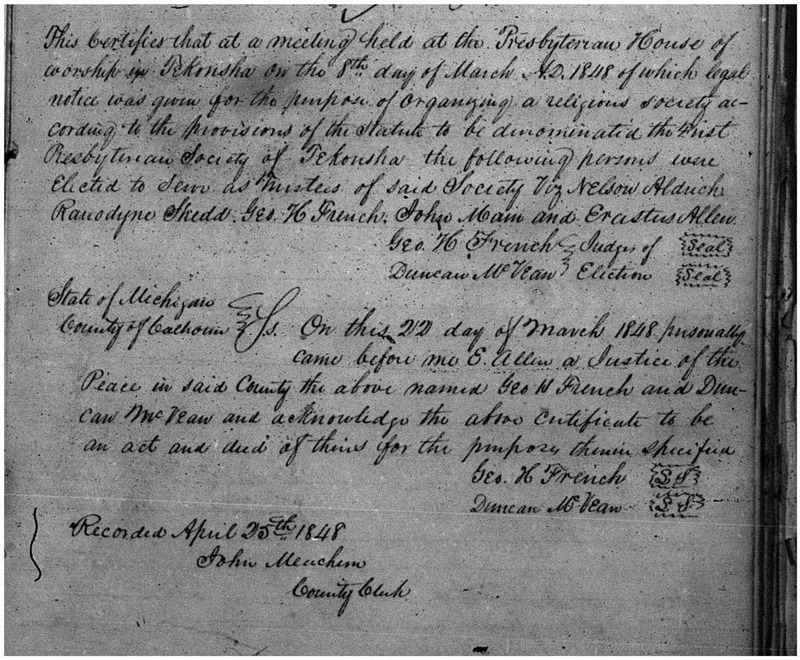 This Certifies that at a meeting held at the Presbyterian House of
worship in Tekonsha on the 8th day of March A.D. 1848 of which legal
notice was given for the purpose of Organizing a religious society ac-
cording to the provisions of the Statute to be denominated the First
Presbyterian Society of Tekonsha the following persons were
Elected to Serve as Trustees of said Society Viz Nelson Aldrich
Ranodyne Shedd. Geo. H French. John Main and Erastus Allen.
Geo. H French } Judges of Seal
Duncan McVean } Election Seal
State of Michigan
County of Calhoun } Ss. On this 22 day of March 1848 personally
came before me E. Allen a Justice of the
Peace in said County the above named Geo H French and Dun-
can McVean and acknowledge the above certificate to be
an act and deed of theirs for the purposes therein specified
Geo. H French L S
Duncan McVean L S
Recorded April 25th 1848
John Meachem
County Clerk